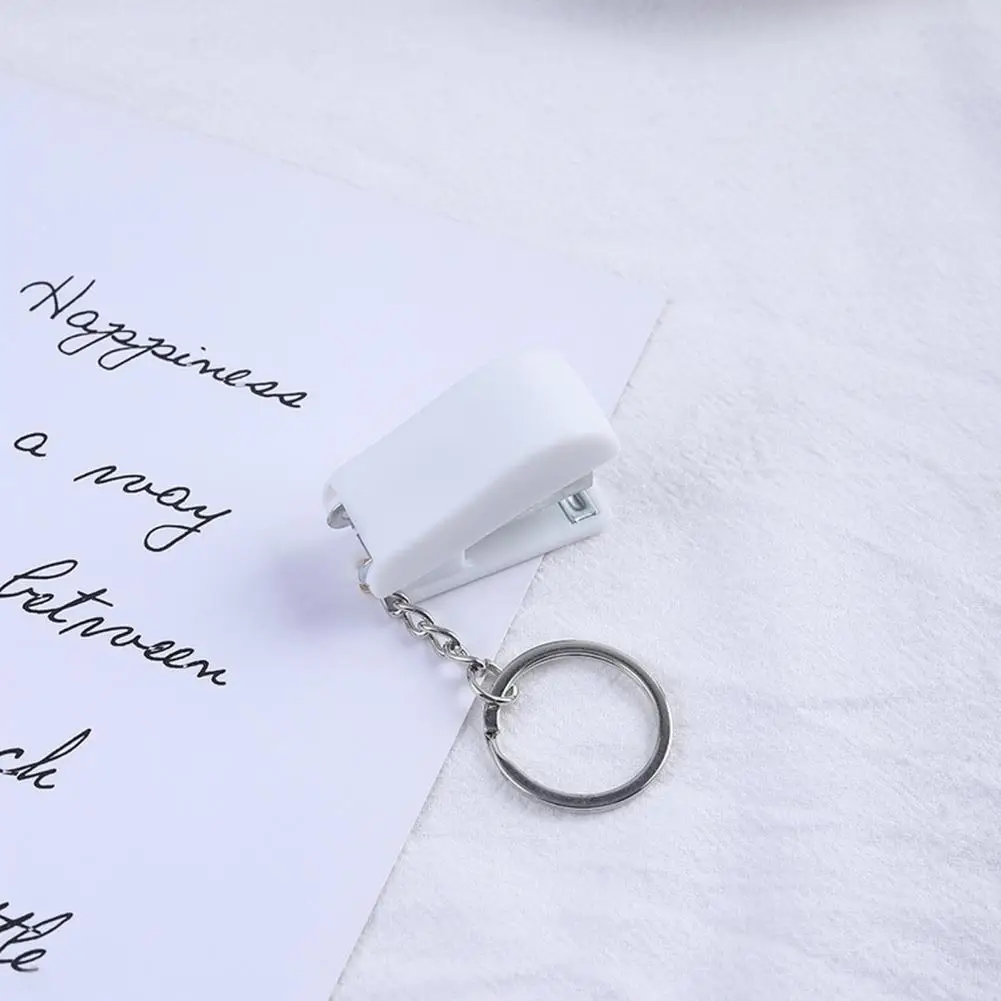 Happiness
a way
between
ck
tle